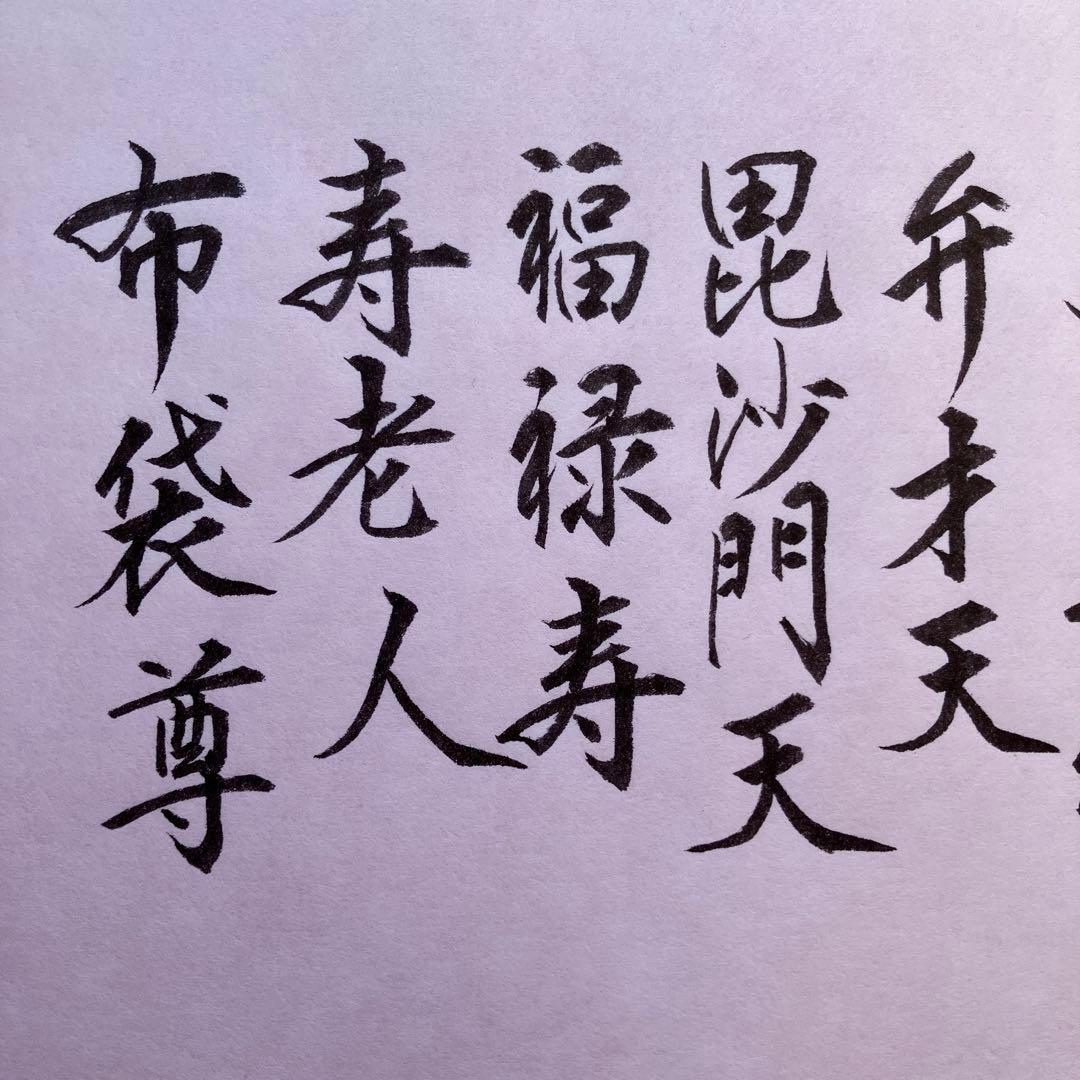 弁才天
毘沙門天
福禄寿
寿老人
布袋尊